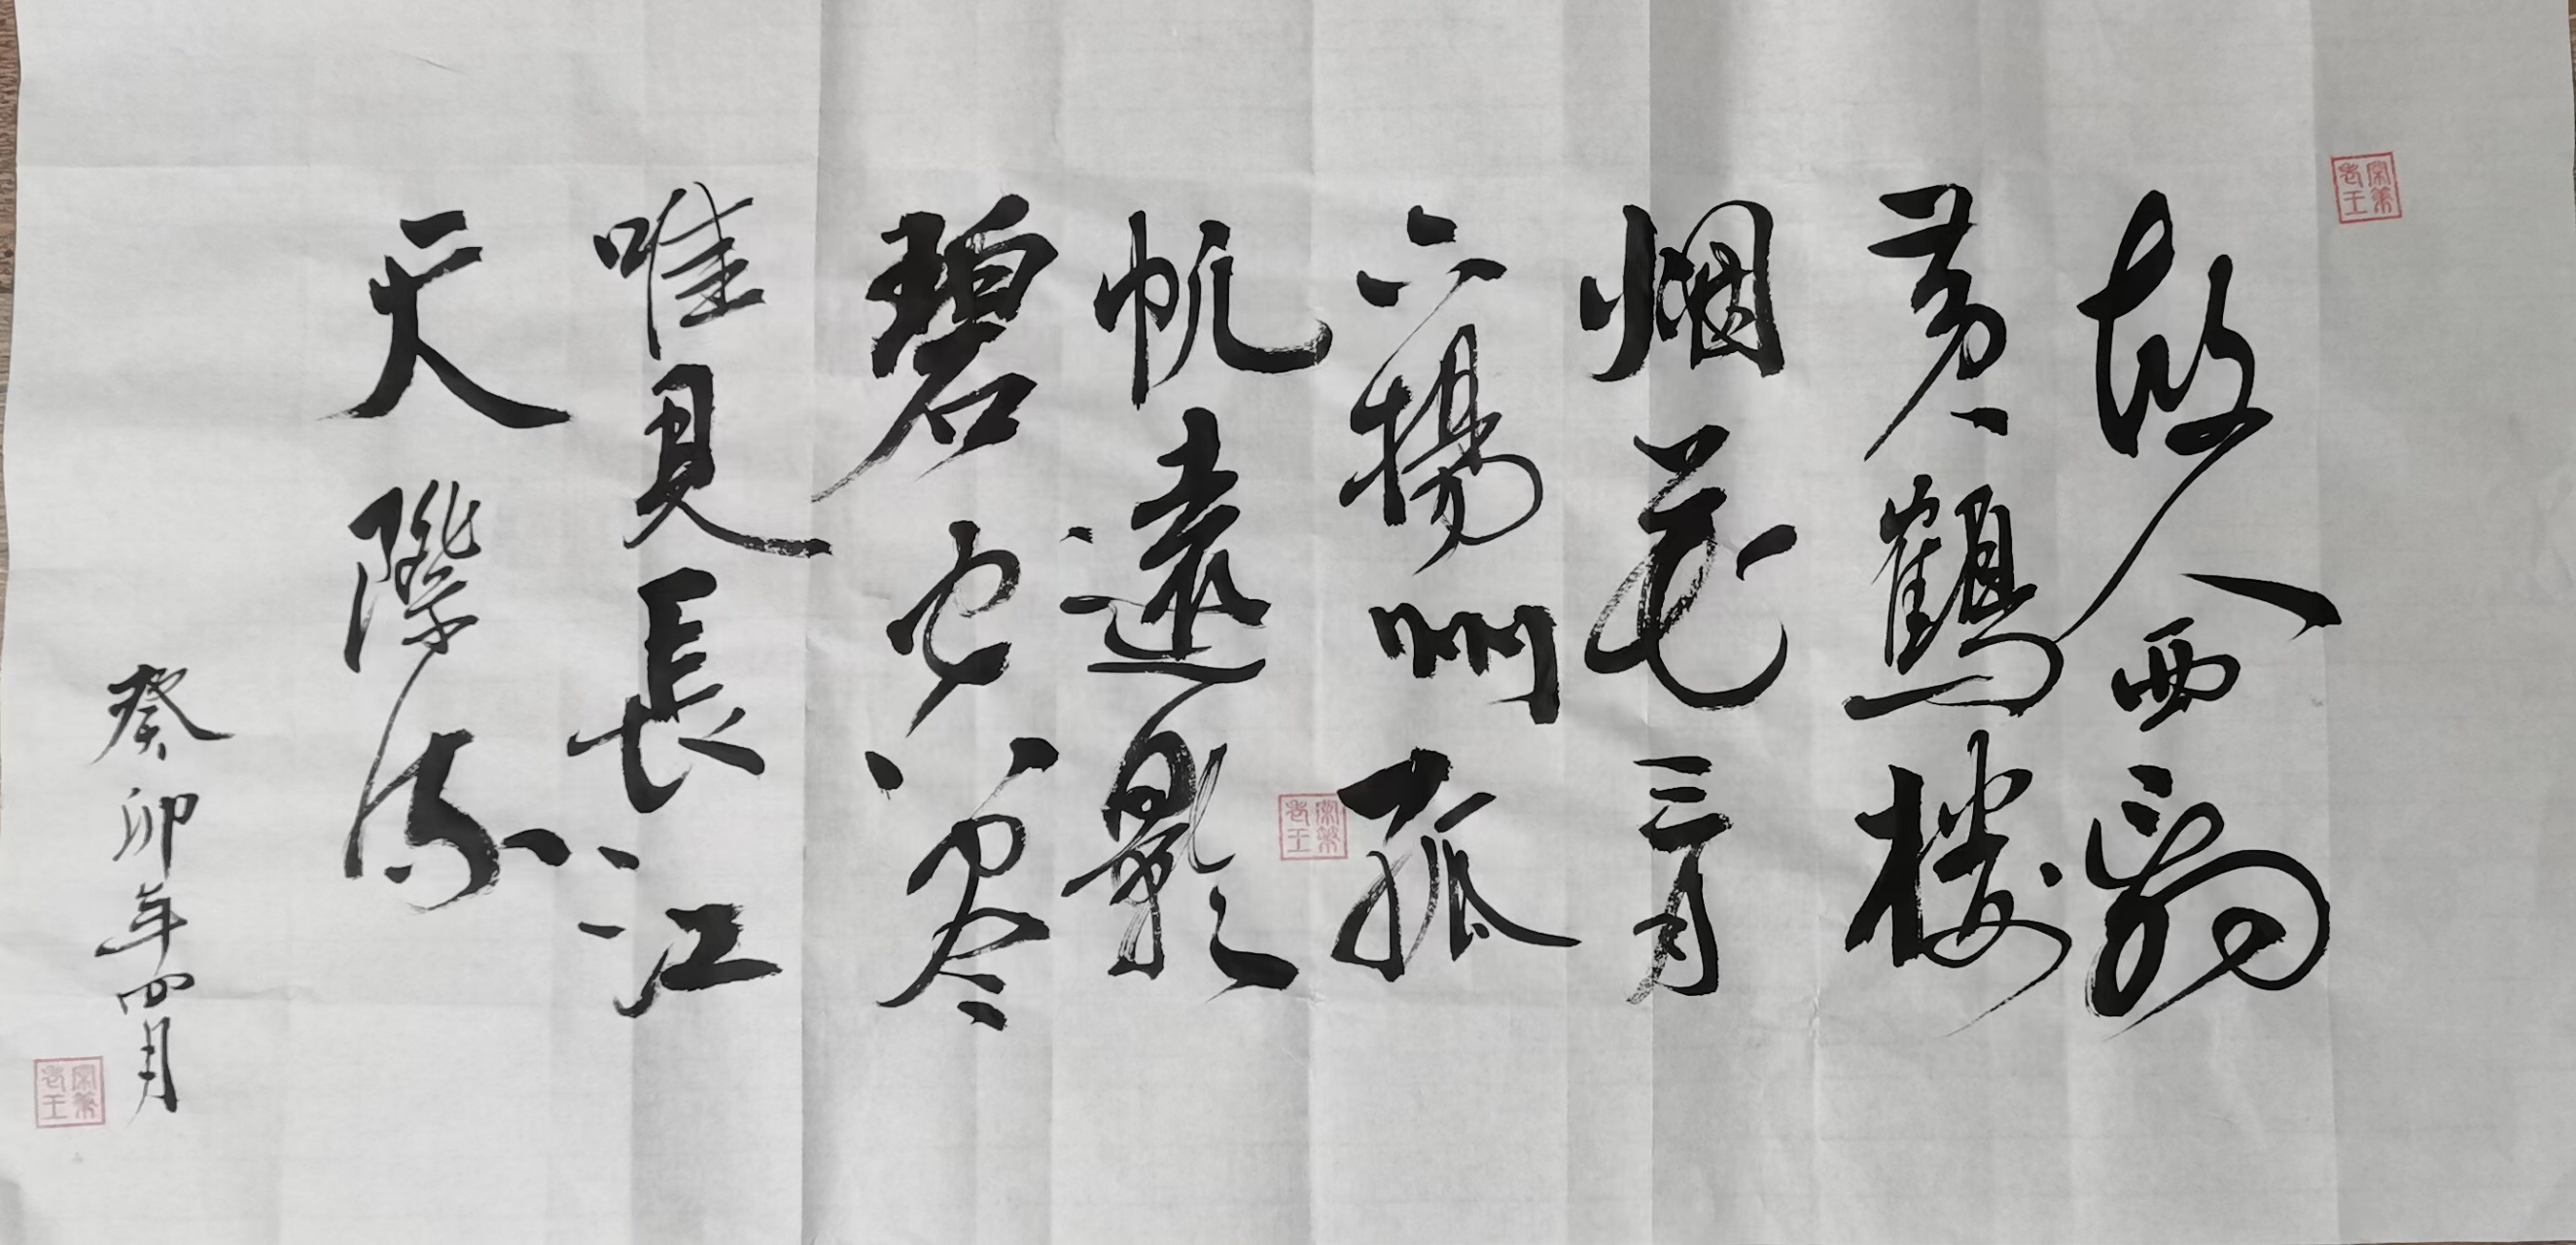 故人西辞
黄鶴樓
烟花三月
下揚州孤
帆遠影
碧空尽
唯見長江
天際流
癸卯年四月